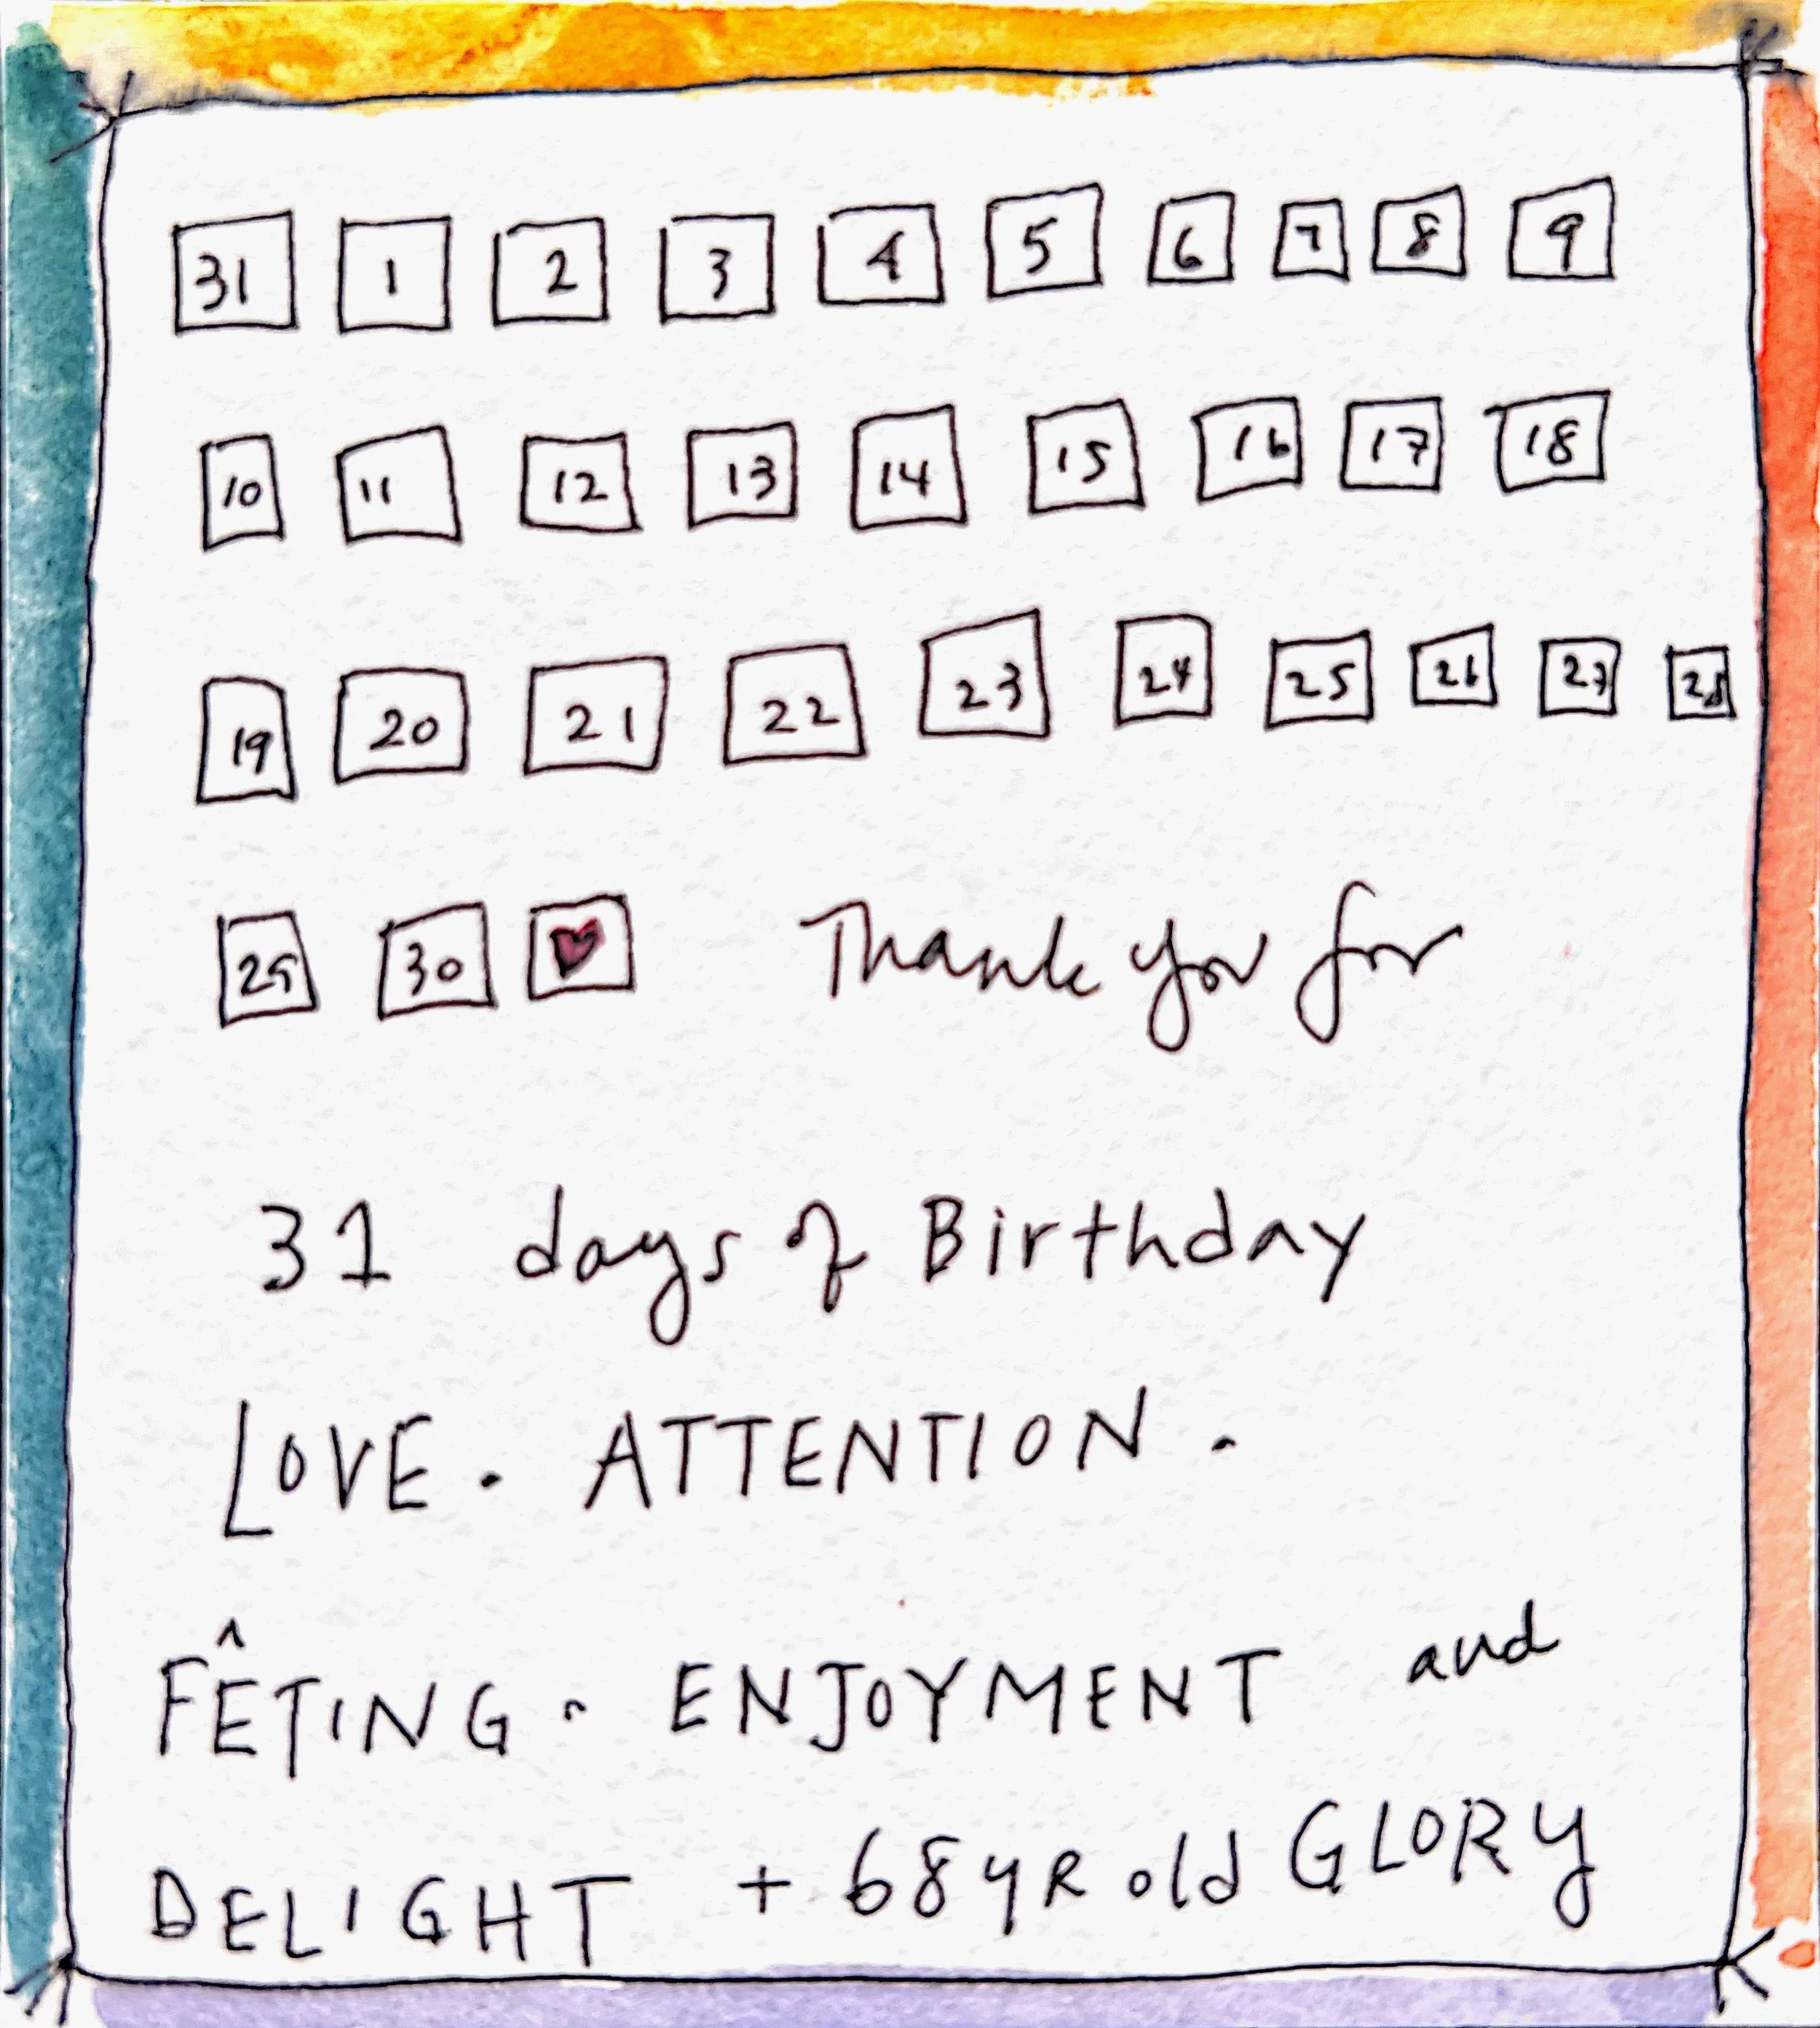 31 1 2 3 4 5 6 7 8 9
10 11 12 13 14 15 16 17 18
19 20 21 22 23 24 25 26 27 28
29 30 ♥ Thank you for
31 days of Birthday
LOVE. ATTENTION.
FÊTING. ENJOYMENT and
DELIGHT + 68 YR old GLORY